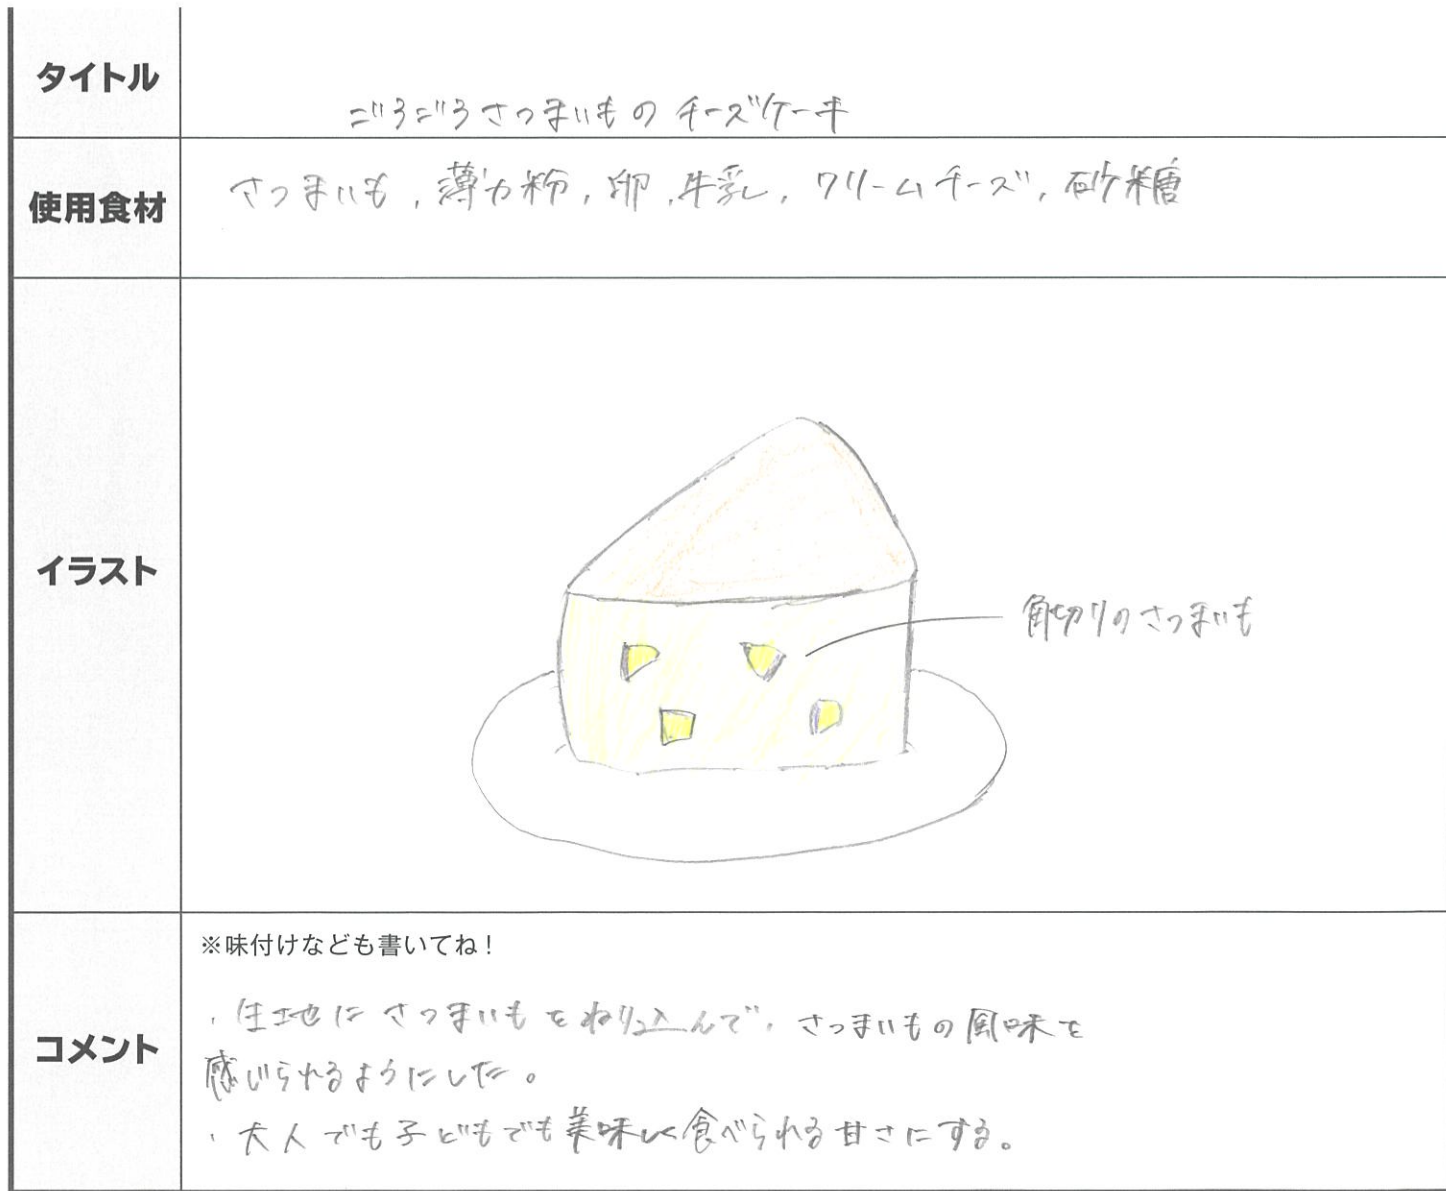 タイトル
ごろごろさつまいものチーズケーキ
使用食材
さつまいも,薄力粉,卵,牛乳,クリームチーズ,砂糖
イラスト
角切りのさつまいも
コメント
※味付けなども書いてね!
・生地にさつまいもをねり込んで、さつまいもの風味を
感じられるようにした。
・大人でも子どもでも美味しく食べられる甘さにする。